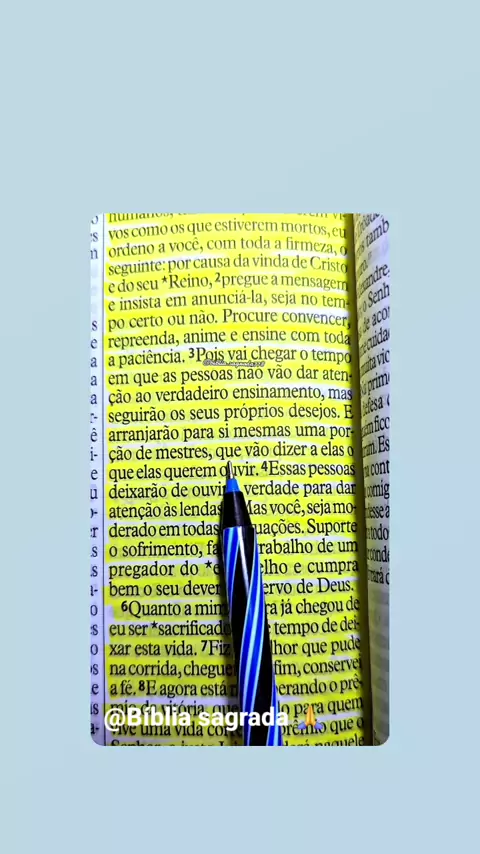 humanos,
vos como os que estiverem mortos, eu
ordeno a você, com toda a firmeza, o
seguinte: por causa da vinda de Cristo
e do seu *Reino, ²pregue a mensagem
e insista em anunciá-la, seja no tem-
po certo ou não. Procure convencer,
repreenda, anime e ensine com toda
a paciência. ³Pois vai chegar o tempo
em que as pessoas não vão dar aten-
ção ao verdadeiro ensinamento, mas
seguirão os seus próprios desejos. E
arranjarão para si mesmas uma por-
ção de mestres, que vão dizer a elas o
que elas querem ouvir. ⁴Essas pessoas
deixarão de ouvir verdade para dar
atenção às lendas Mas você, seja mo-
derado em todas uações. Suporte
o sofrimento, fa trabalho de um
pregador do *e elho e cumpra
bem o seu dever ervo de Deus.
⁶Quanto a mim ra já chegou de
eu ser *sacrificado tempo de dei-
xar esta vida. ⁷Fiz lhor que pude
na corrida, cheguei fim, conservei
a fé. ⁸E agora está perando o prê-
mio da vitória, que lo para quem
vive uma vida cor prêmio que o
@Bíblia sagrada 🙏